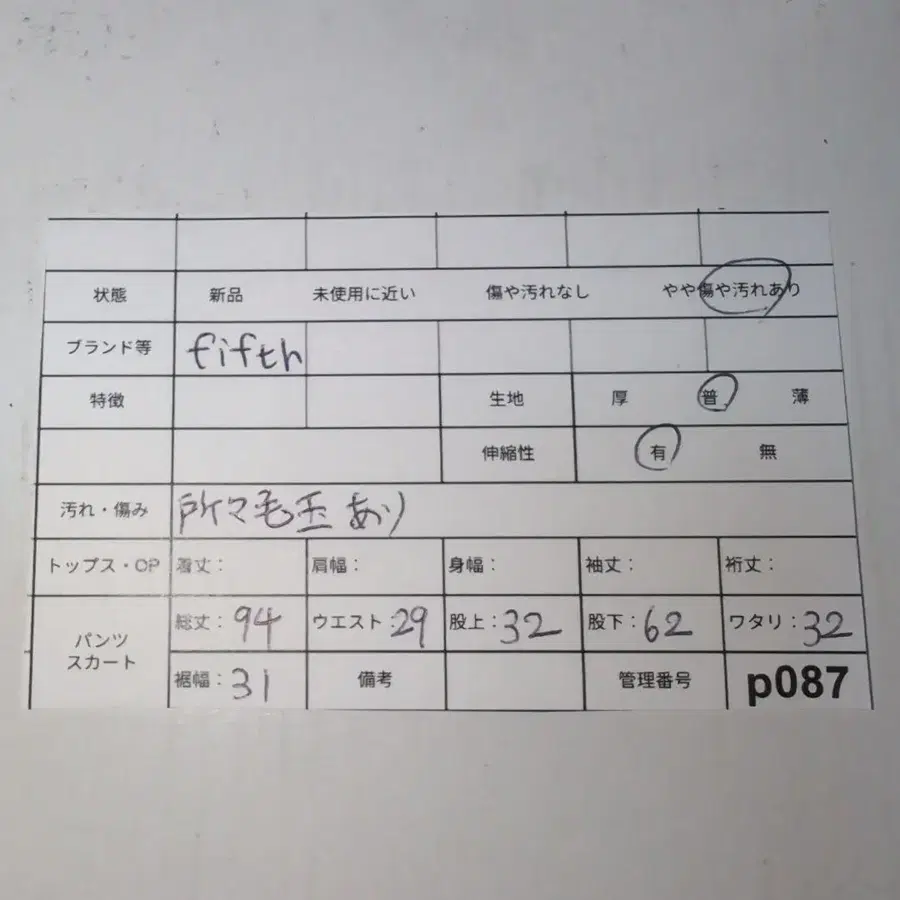 状態 新品 未使用に近い 傷や汚れなし やや傷や汚れあり
ブランド等 fifth
特徴 生地 厚 普 薄
伸縮性 有 無
汚れ・傷み 所々毛玉あり
トップス・OP 着丈: 肩幅: 身幅: 袖丈: 裄丈:
パンツ
スカート
総丈:94 ウエスト:29 股上:32 股下:62 ワタリ:32
裾幅:31 備考 管理番号 p087